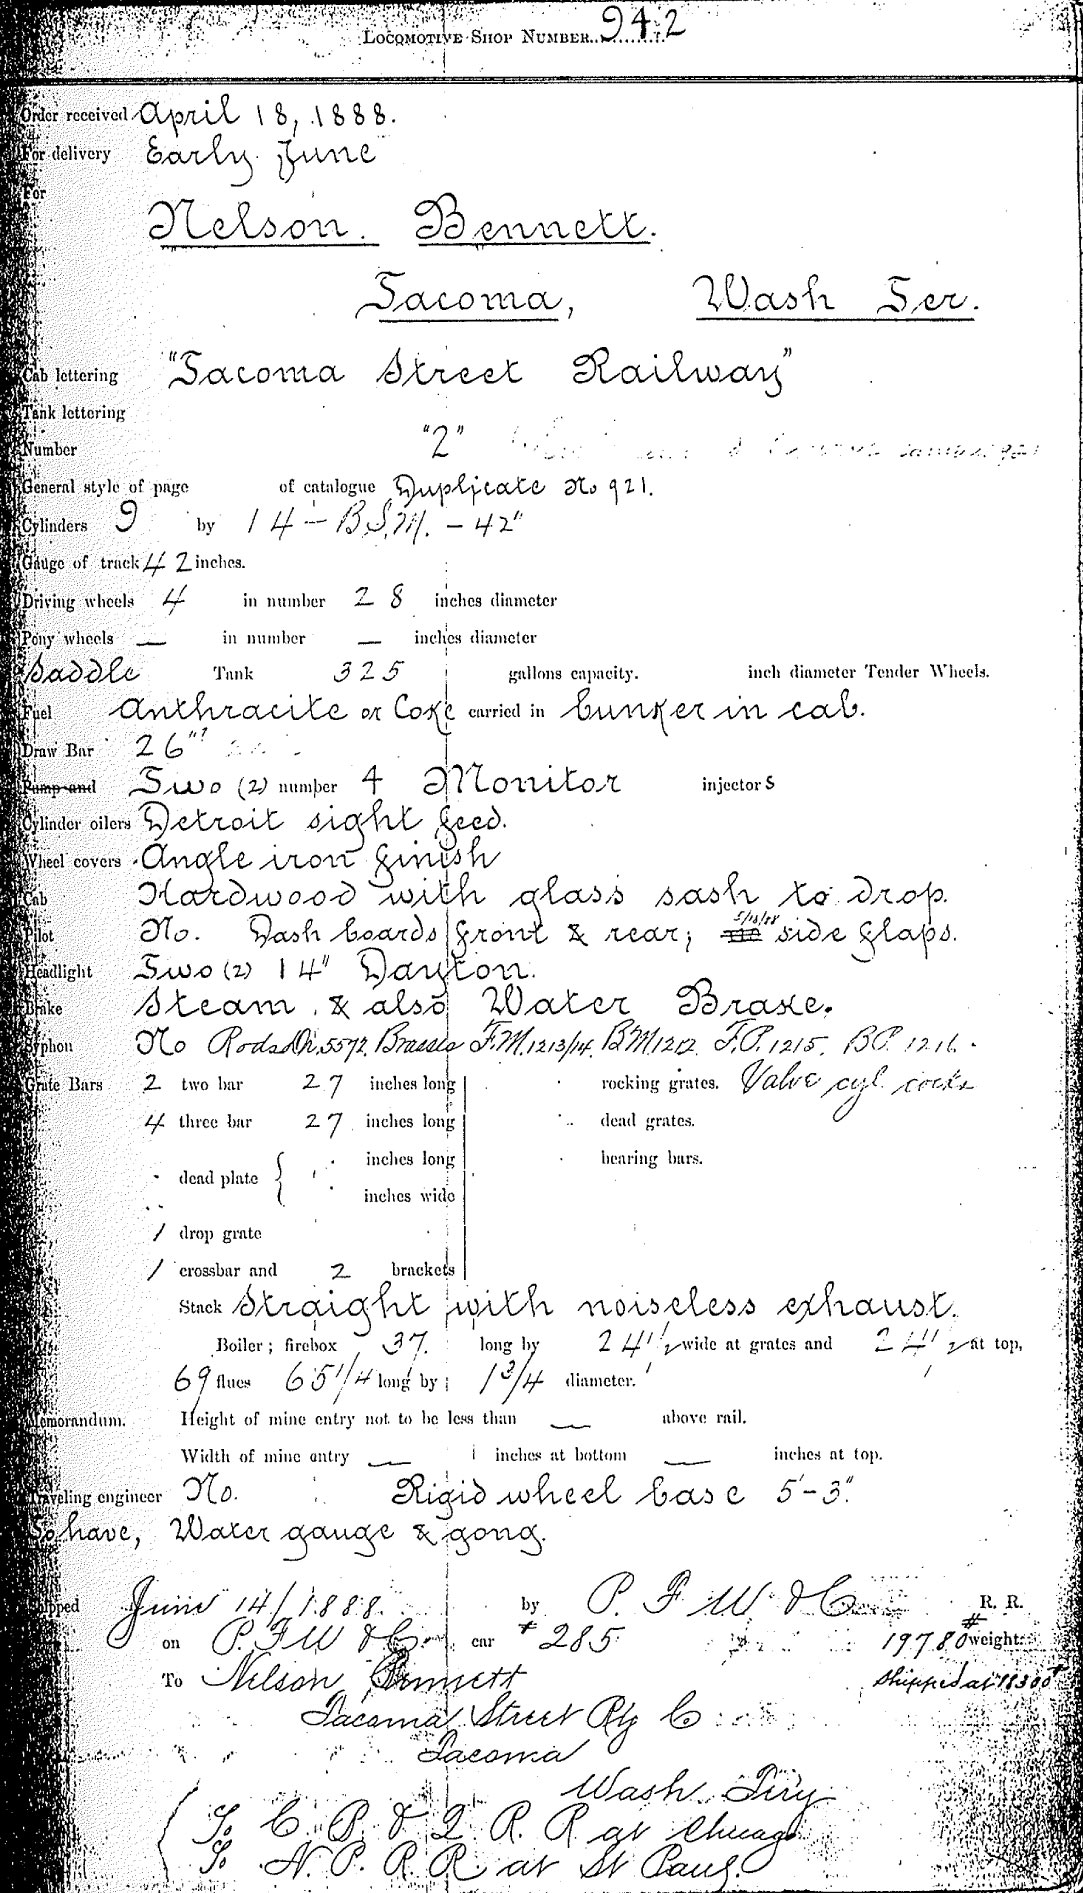 LOCOMOTIVE SHOP NUMBER 942
Order received April 18, 1888.
For delivery Early June
For
Nelson. Bennett.
Tacoma, Wash Ter.
Cab lettering "Tacoma Street Railway"
Tank lettering
Number "2"
General style of page of catalogue Duplicate No 921.
Cylinders 9 by 14 – B.S.M. – 42"
Gauge of track 42 inches.
Driving wheels 4 in number 28 inches diameter
Pony wheels — in number — inches diameter
Saddle Tank 325 gallons capacity. inch diameter Tender Wheels.
Fuel Anthracite or Coke carried in bunker in cab.
Draw Bar 26"
Pump and Two (2) number 4 Monitor injectors
Cylinder oilers Detroit sight feed.
Wheel covers Angle iron finish
Cab Hardwood with glass sash to drop.
Pilot No. Dash boards front & rear; side flaps.
Headlight Two (2) 14" Dayton.
Brake Steam & also Water Brake.
Syphon No Rods 5572. Brasses F.M. 1213/14. B.M. 1212 F.P. 1215. B.P. 1216.
Grate Bars 2 two bar 27 inches long rocking grates. Valve cyl. cocks
4 three bar 27 inches long dead grates.
dead plate inches long bearing bars.
inches wide
1 drop grate
1 crossbar and 2 brackets
Stack Straight with noiseless exhaust.
Boiler; firebox 37. long by 24 1/2 wide at grates and 24 1/2 at top,
69 flues 65 1/4 long by 1 3/4 diameter.
Memorandum. Height of mine entry not to be less than — above rail.
Width of mine entry — inches at bottom — inches at top.
Traveling engineer No. Rigid wheel base 5'-3".
To have, Water gauge & gong.
Shipped June 14/1888. by P. F. W. & C. R. R.
on P. F. W & C car # 285 19780# weight
To Nelson Bennett Shipped at 18500#
Tacoma Street Ry Co
Tacoma
Wash. Tiry
To C. B. & Q. R. R at Chicago
To N. P. R. R at St Paul.